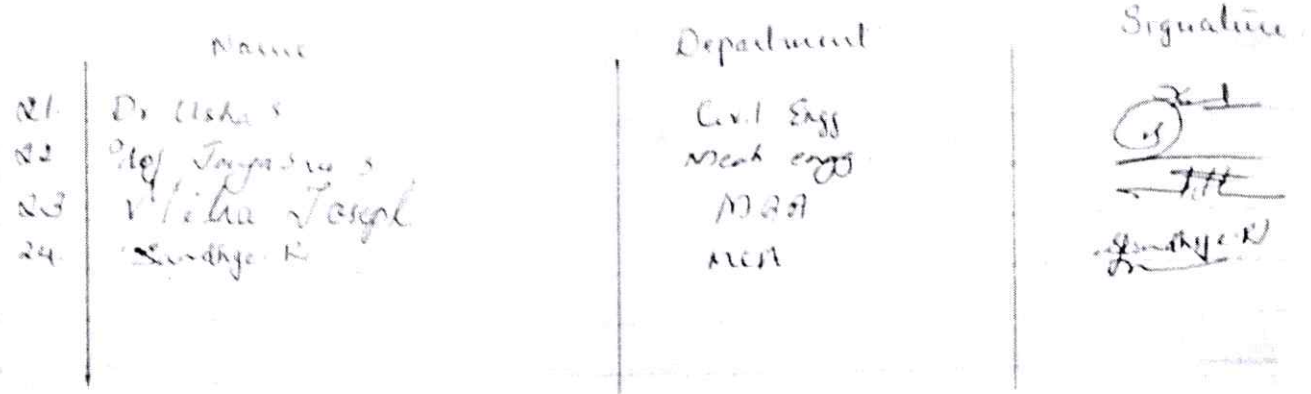 Name Department Signature
21. Dr Usha S Civil Engg
22 Prof Jayasree S Mech engg
23 Joseph MBA
24. Sandhya R MCA Sandhya R